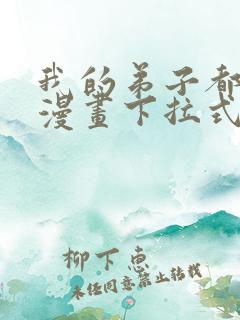 我的弟子都
漫畫下拉式
柳下惠
未经同意禁止转载